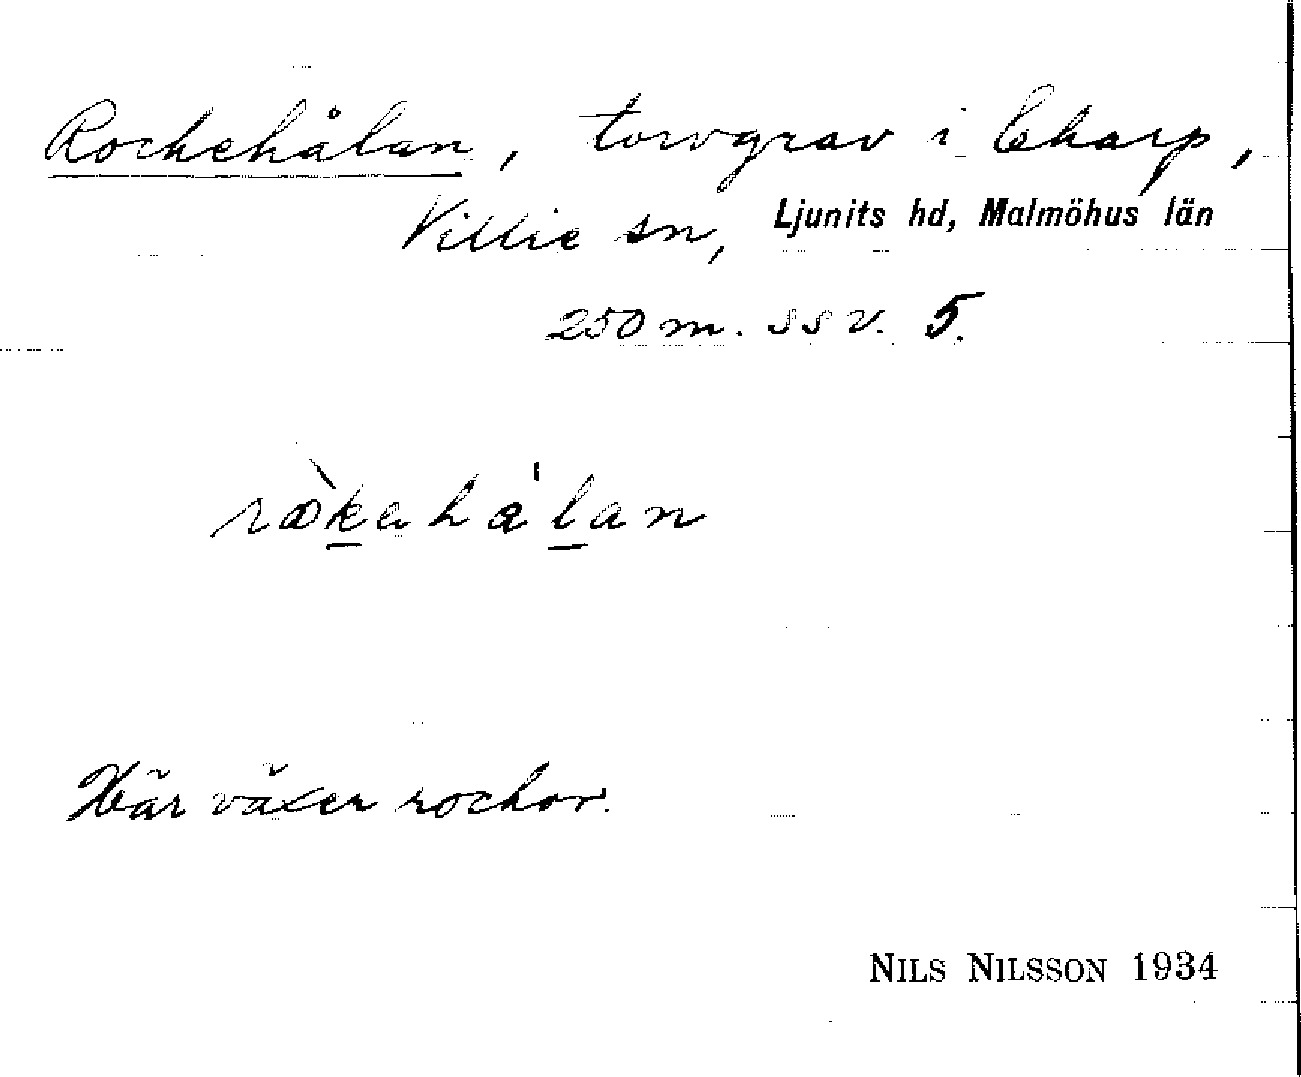 Rockehålan, torvgrav i Ekarp,
Villie sn, Ljunits hd, Malmöhus län
250 m. ssv. 5.
Här växer rockor.
NILS NILSSON 1934